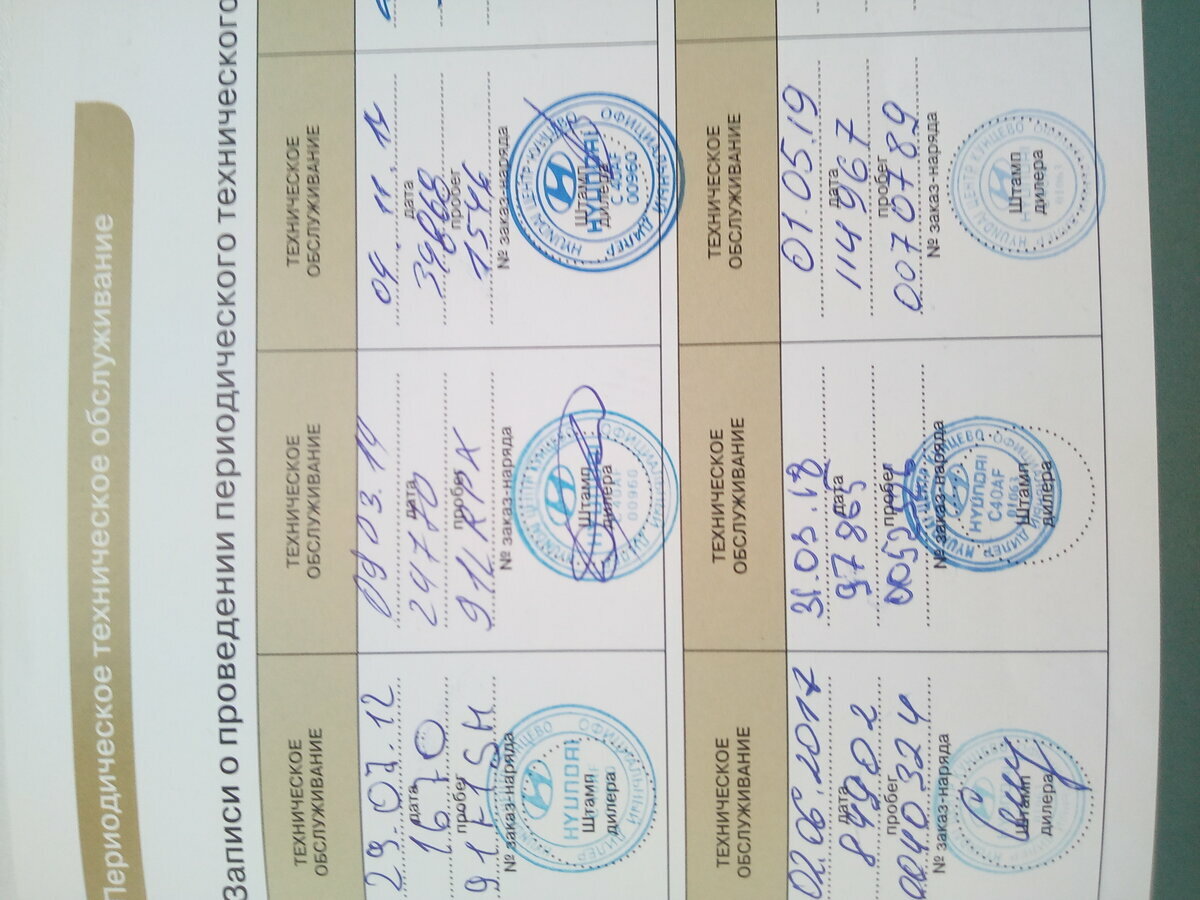 Периодическое техническое обслуживание
Записи о проведении периодического технического
ТЕХНИЧЕСКОЕ
ОБСЛУЖИВАНИЕ
29.07.12
дата
1670
пробег
№ заказ-наряда
HYUNDAI
ОФИЦИАЛЬНЫЙ ДИЛЕР
Штамп
дилера
ТЕХНИЧЕСКОЕ
ОБСЛУЖИВАНИЕ
09 03.14
дата
24770
пробег
912LRPX
№ заказ-наряда
ОФИЦИАЛЬНЫЙ ДИЛЕР
C40AF
00960
Штамп
дилера
ТЕХНИЧЕСКОЕ
ОБСЛУЖИВАНИЕ
дата
пробег
1546
№ заказ-наряда
HYUNDAI ЦЕНТР КУНЦЕВО ОФИЦИАЛЬНЫЙ ДИЛЕР
HYUNDAI
C40AF
00960
Штамп
дилера
ТЕХНИЧЕСКОЕ
ОБСЛУЖИВАНИЕ
02.06.2017
дата
84902
пробег
0040324
№ заказ-наряда
Штамп
дилера
ТЕХНИЧЕСКОЕ
ОБСЛУЖИВАНИЕ
31.03.18
дата
97865
пробег
№ заказ-наряда
HYUNDAI
C40AF
Штамп
дилера
ТЕХНИЧЕСКОЕ
ОБСЛУЖИВАНИЕ
01.05.19
дата
114967
пробег
0070789
№ заказ-наряда
HYUNDAI ЦЕНТР КУНЦЕВО
Штамп
дилера